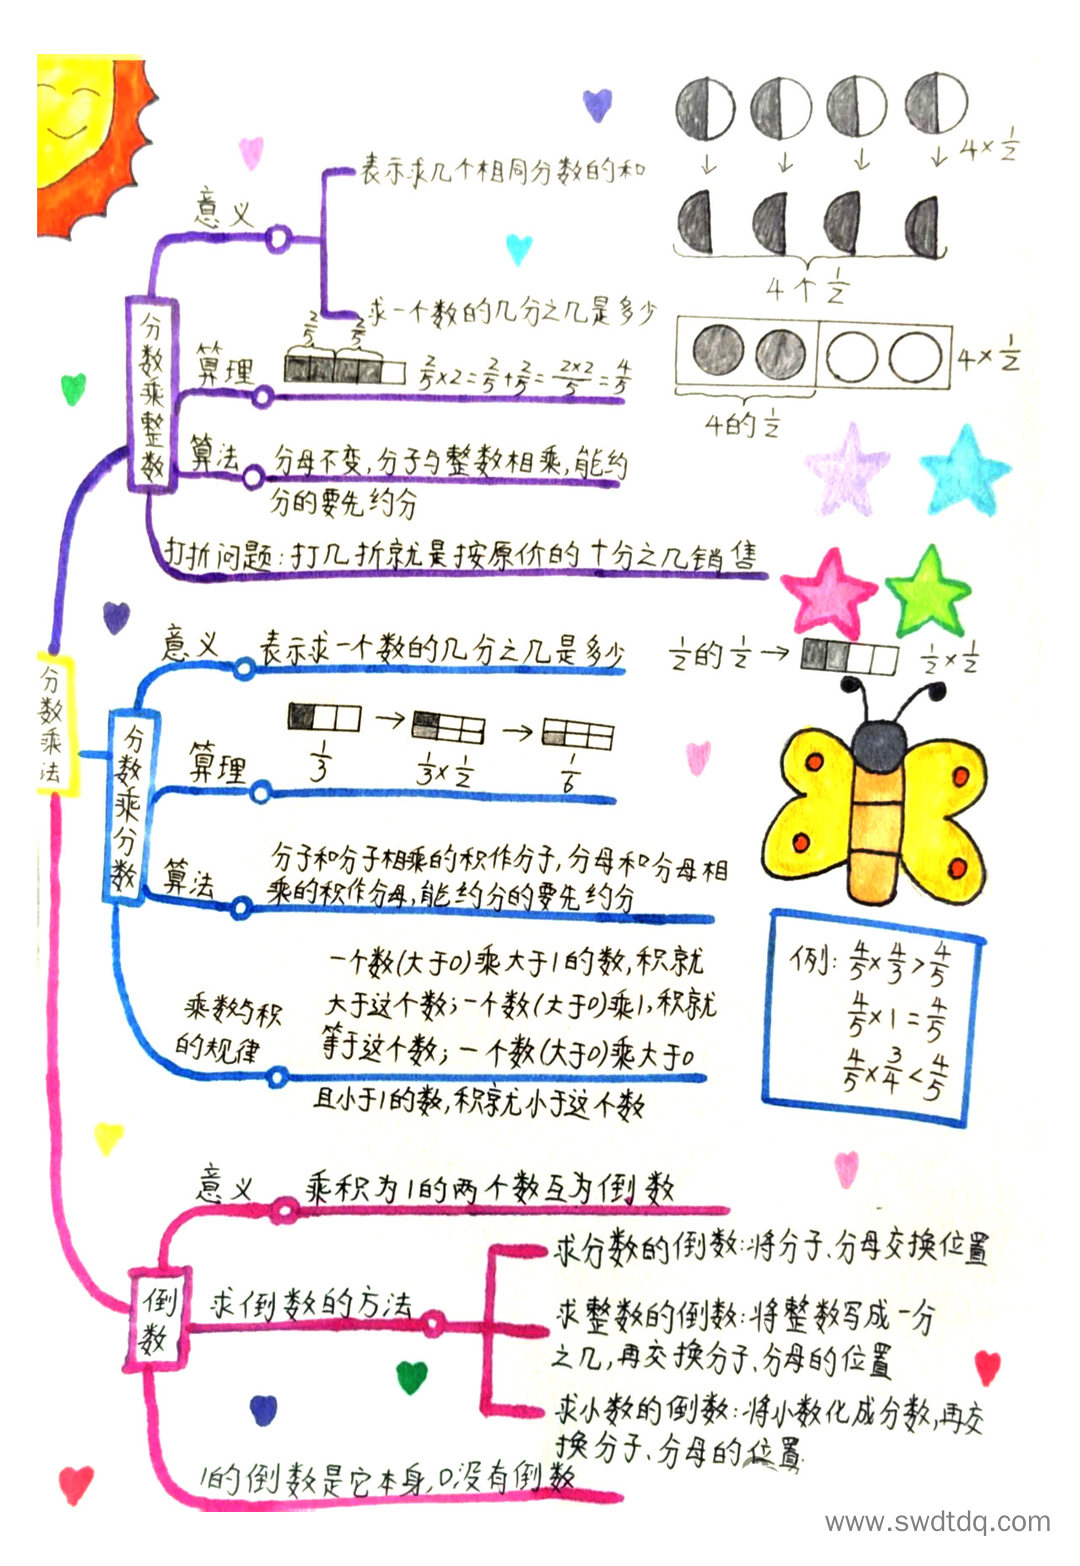 分数乘法
分数乘整数
意义
表示求几个相同分数的和
求一个数的几分之几是多少
4×1/2
4个1/2
4×1/2
4的1/2
算理
2/5 2/5
2/5×2=2/5+2/5=2×2/5=4/5
算法
分母不变,分子与整数相乘,能约
分的要先约分
打折问题:打几折就是按原价的十分之几销售
分数乘分数
意义
表示求一个数的几分之几是多少
1/2的1/2→
1/2×1/2
算理
1/3
→
1/3×1/2
→
1/6
算法
分子和分子相乘的积作分子,分母和分母相
乘的积作分母,能约分的要先约分
乘数与积
的规律
一个数(大于0)乘大于1的数,积就
大于这个数;一个数(大于0)乘1,积就
等于这个数;一个数(大于0)乘大于0
且小于1的数,积就小于这个数
例:4/5×4/3>4/5
4/5×1=4/5
4/5×3/4<4/5
倒数
意义
乘积为1的两个数互为倒数
求倒数的方法
求分数的倒数:将分子、分母交换位置
求整数的倒数:将整数写成一分
之几,再交换分子、分母的位置
求小数的倒数:将小数化成分数,再交
换分子、分母的位置
1的倒数是它本身,0没有倒数
www.swdtdq.com